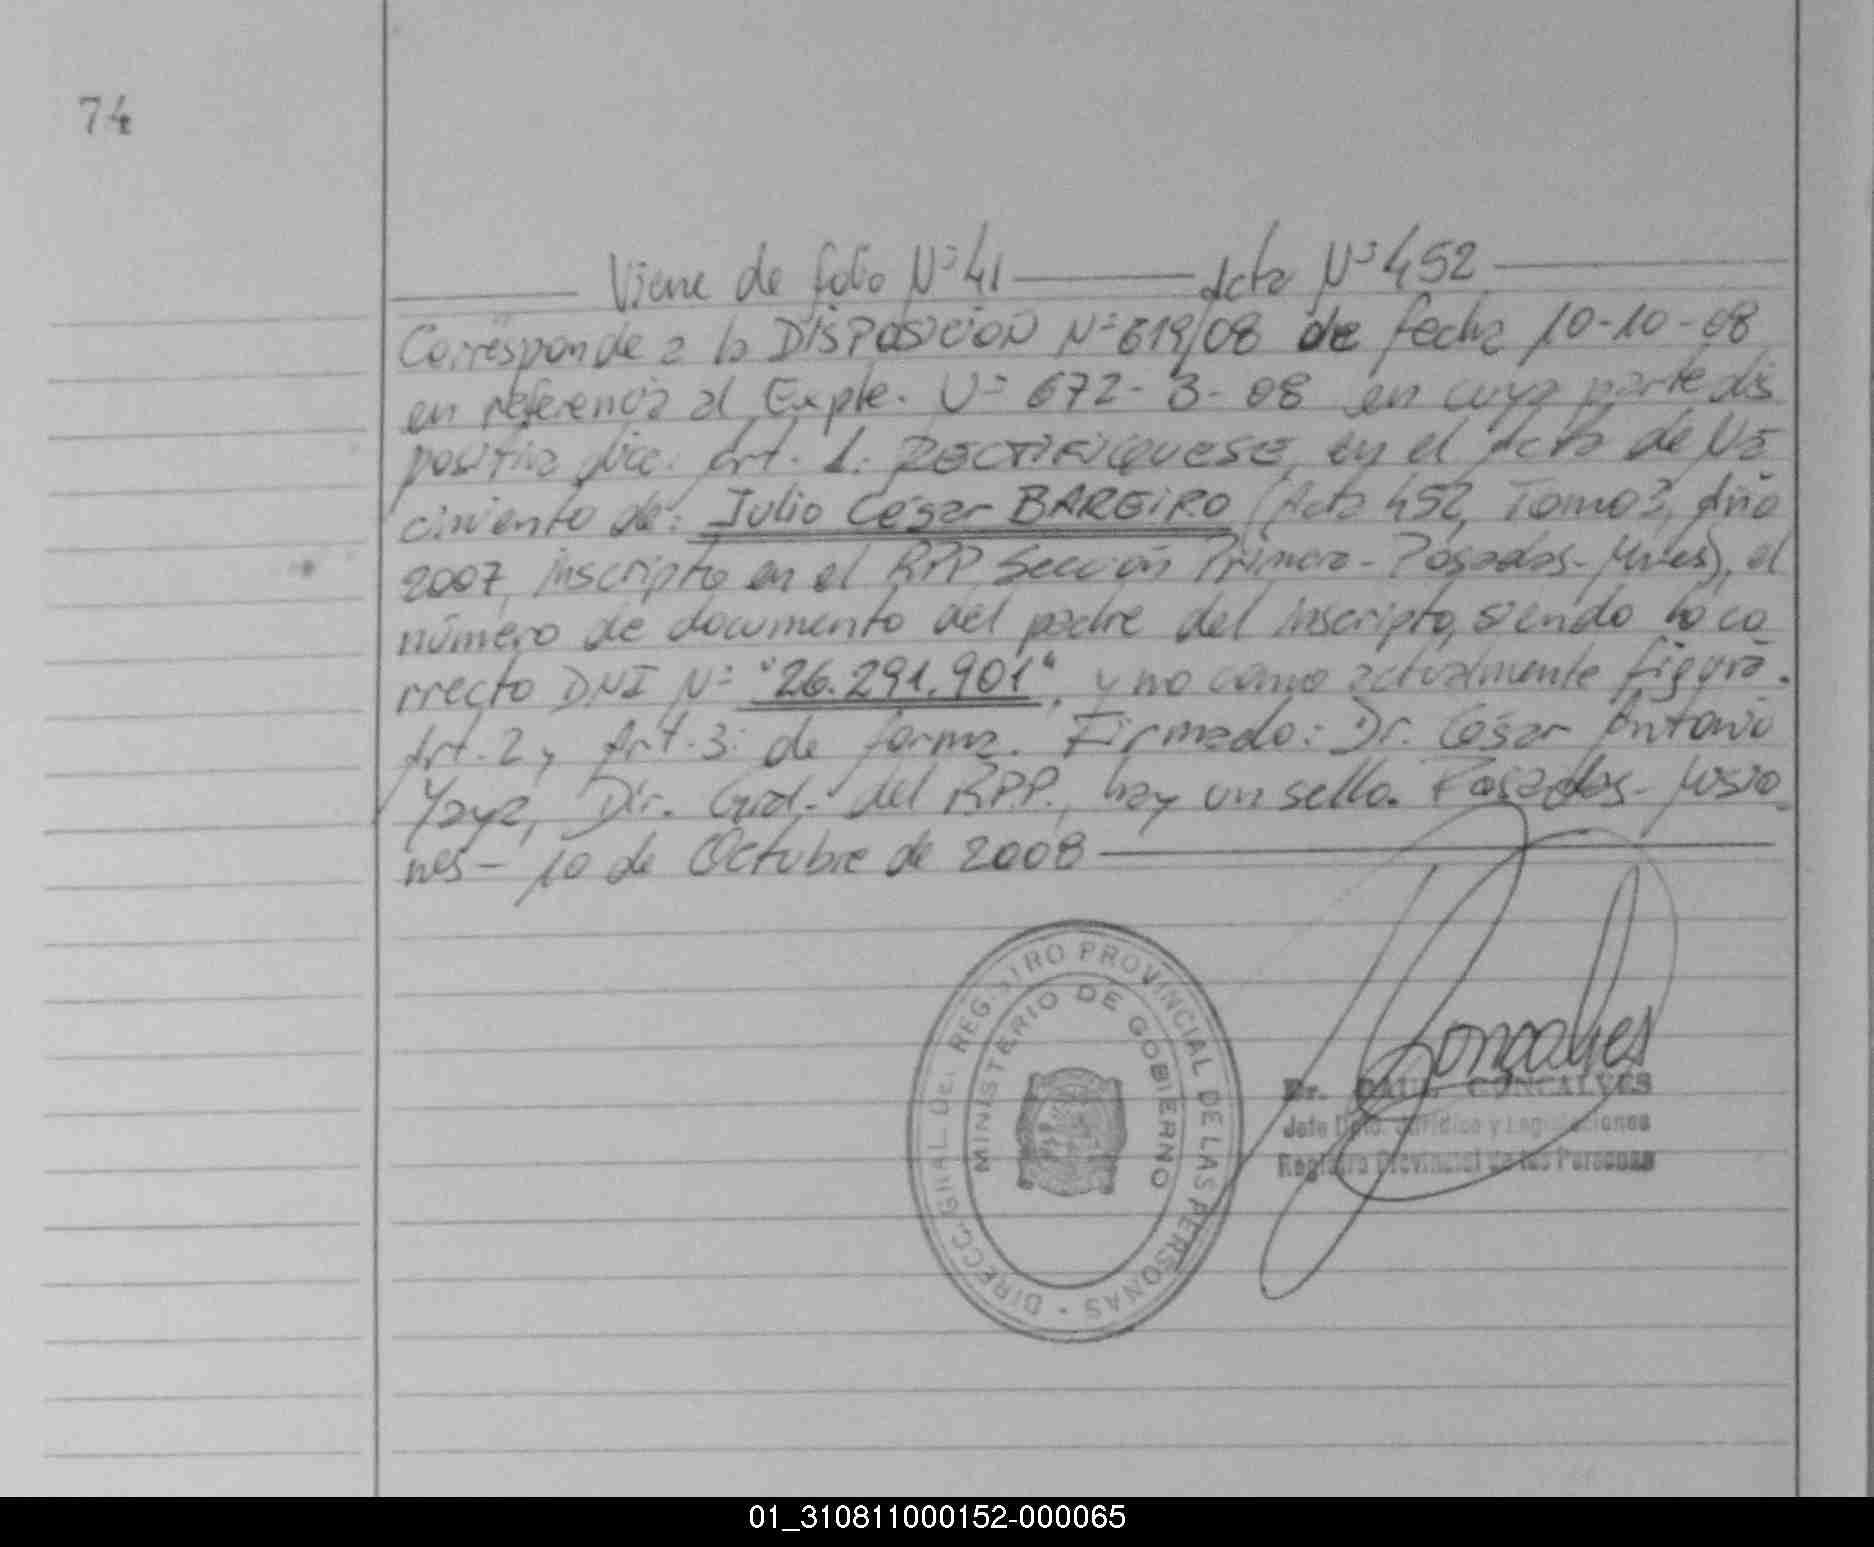 74
Viene de folio Nº 41 Acta Nº 452
Corresponde a la DISPOSICION Nº 619/08 de fecha 10-10-08
en referencia al Expte. Nº 672-3-08 en cuya parte dis
positiva dice: Art. 1: RECTIFIQUESE, en el Acta de Na
cimiento de: Julio César BAREIRO (Acta 452, Tomo 3, Año
2007, inscripto en el RPP Sección Primera - Posadas - Mnes), el
número de documento del padre del inscripto, siendo lo co
rrecto DNI Nº "26.291.901", y no como actualmente figura.
Art. 2 y Art. 3: de forma. Firmado: Dr. César Antonio
Yaya, Dir. Gral. del R.P.P., hay un sello. Posadas - Misio
nes - 10 de Octubre de 2008
DIRECC. GRAL. DEL REGISTRO PROVINCIAL DE LAS PERSONAS
MINISTERIO DE GOBIERNO
Goncalves
Dr. RAUL GONCALVES
Jefe Dpto. Jurídico y Legislaciones
Registro Provincial de las Personas
01_310811000152-000065